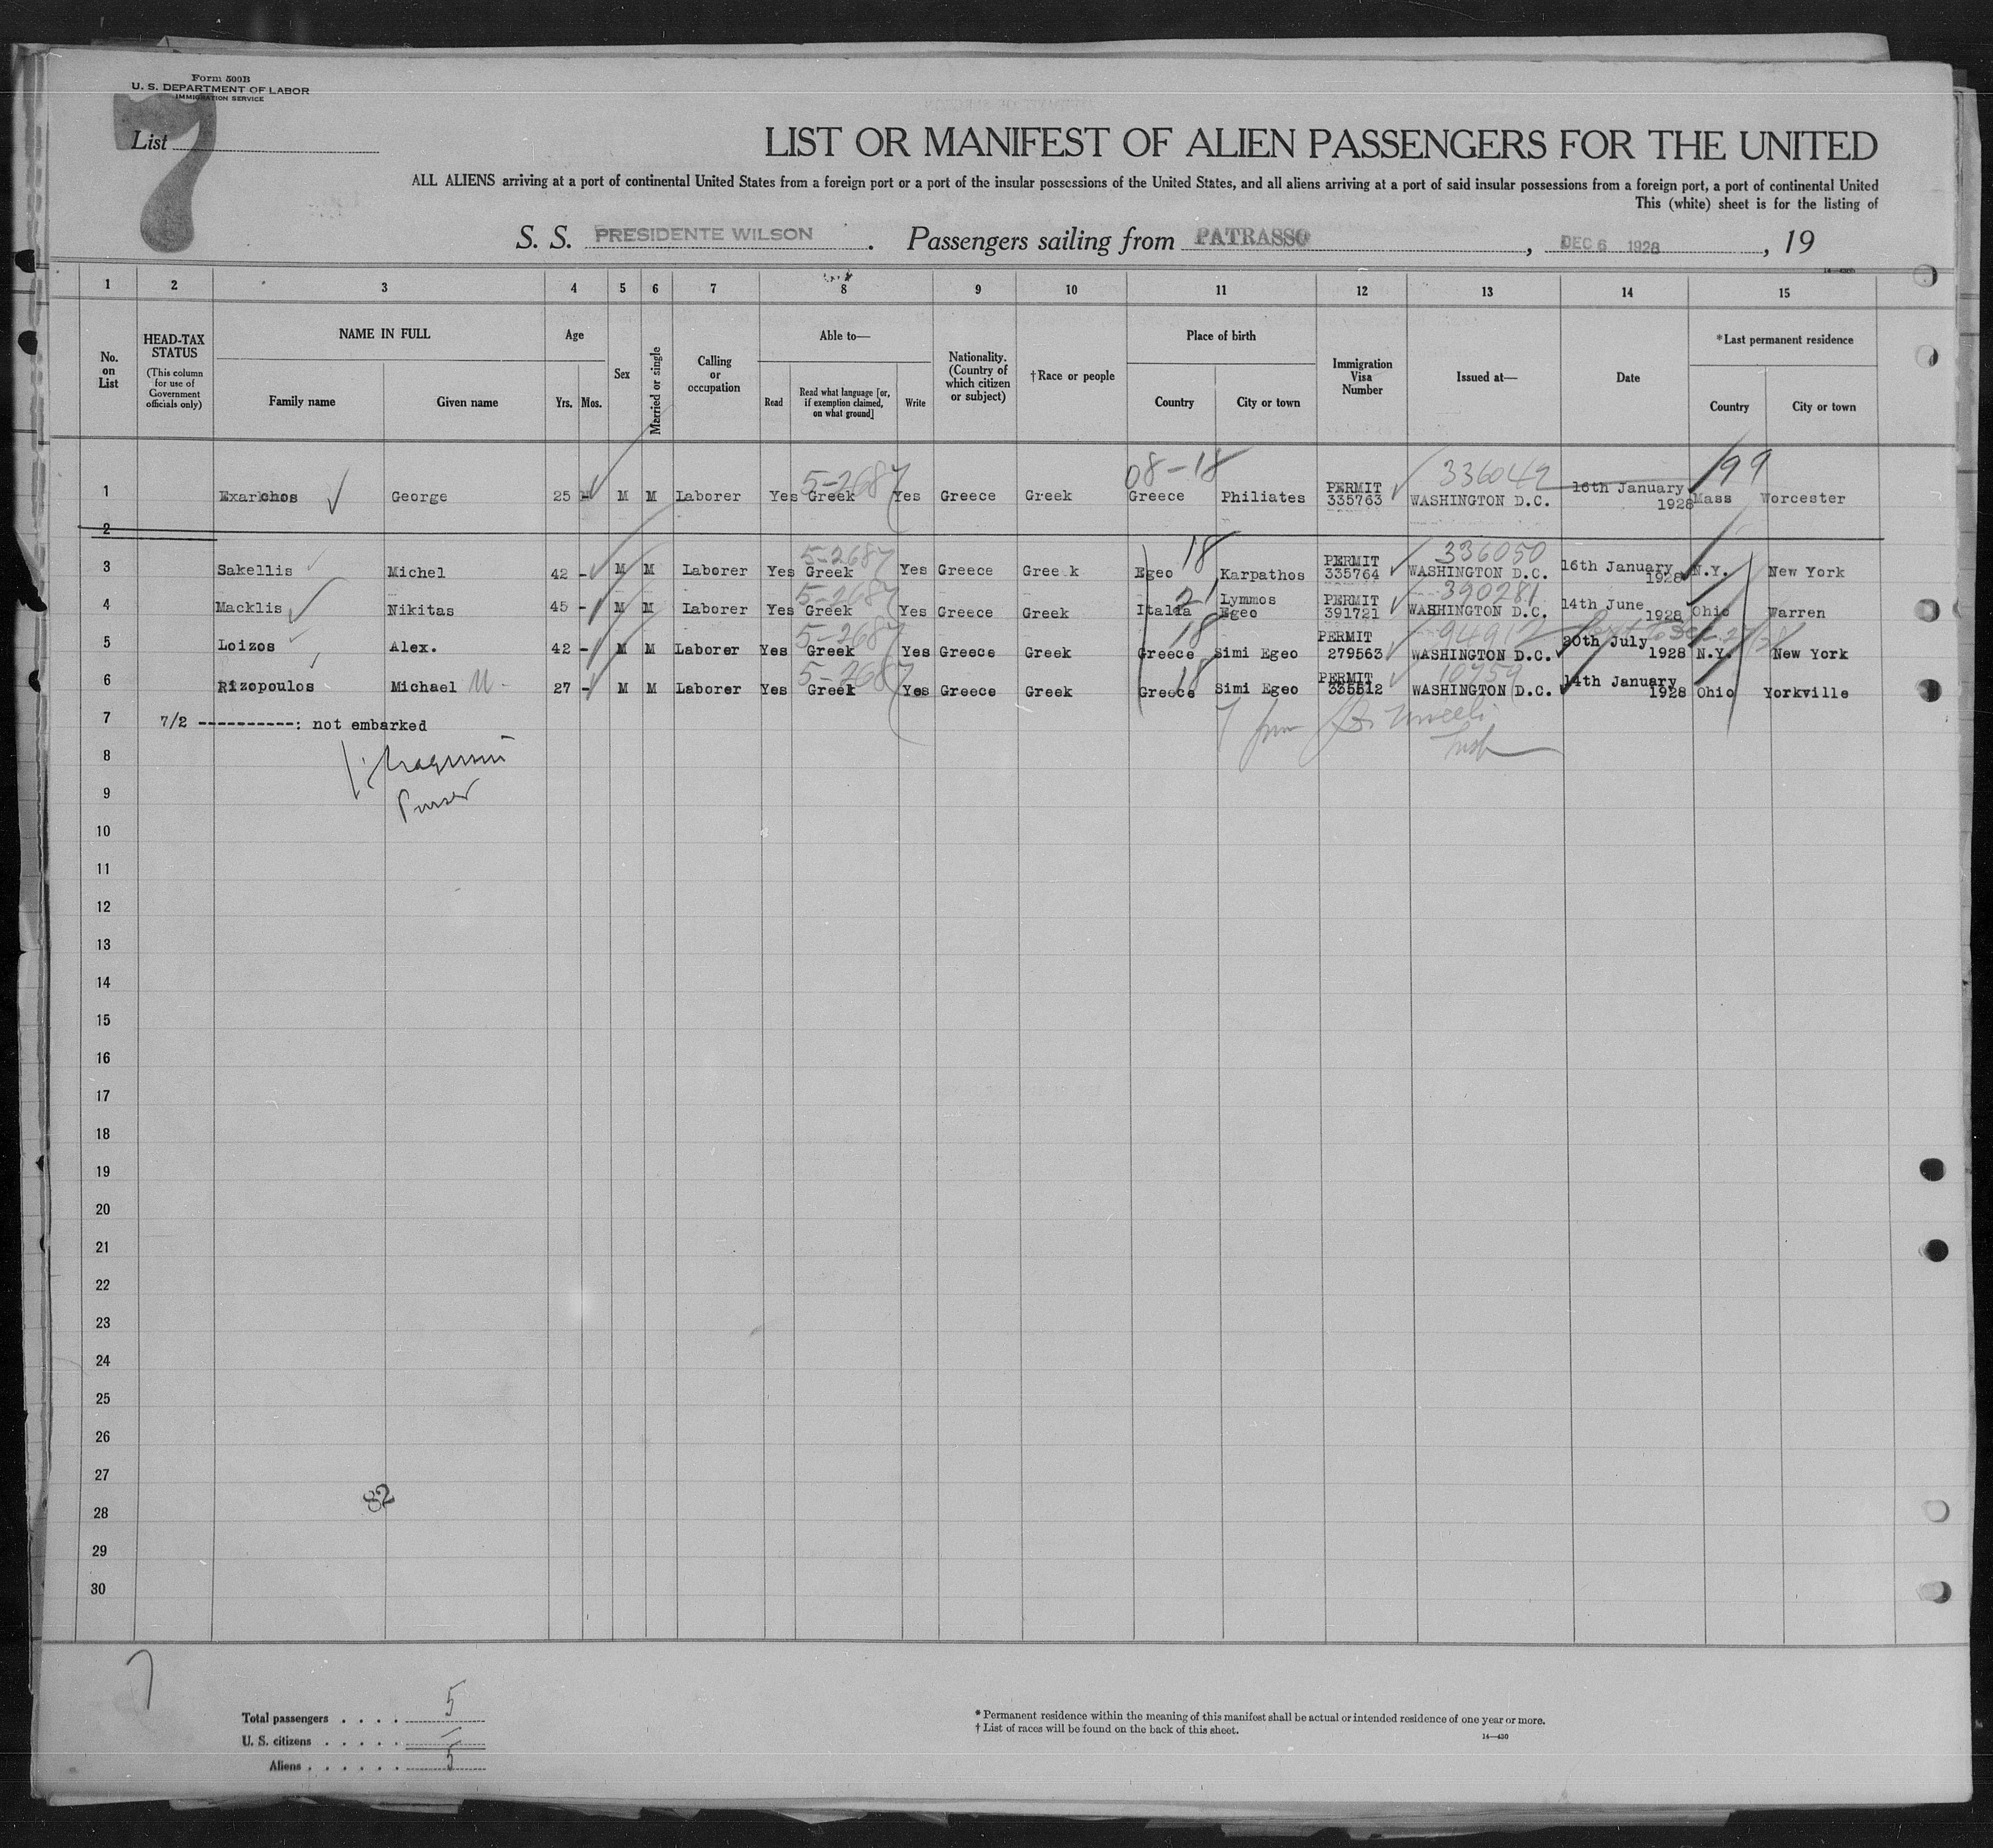 Form 500B
U. S. DEPARTMENT OF LABOR
IMMIGRATION SERVICE
List 7
LIST OR MANIFEST OF ALIEN PASSENGERS FOR THE UNITED
ALL ALIENS arriving at a port of continental United States from a foreign port or a port of the insular possessions of the United States, and all aliens arriving at a port of said insular possessions from a foreign port, a port of continental United
This (white) sheet is for the listing of
S. S. PRESIDENTE WILSON . Passengers sailing from PATRASSO , DEC 6 1928 , 19
1 2 3 4 5 6 7 8 9 10 11 12 13 14 15
No. on List
HEAD-TAX STATUS (This column for use of Government officials only)
NAME IN FULL
Family name Given name
Age
Yrs. Mos.
Sex
Married or single
Calling or occupation
Able to—
Read
Read what language [or, if exemption claimed, on what ground]
Write
Nationality. (Country of which citizen or subject)
†Race or people
Place of birth
Country City or town
Immigration Visa Number
Issued at—
Date
*Last permanent residence
Country City or town
08-18 336042 199
5-2687
1 Exarchos George 25 - M M Laborer Yes Greek Yes Greece Greek Greece Philiates PERMIT 335763 WASHINGTON D.C. 16th January 1928 Mass Worcester
2
5-2687 18 336050
3 Sakellis Michel 42 - M M Laborer Yes Greek Yes Greece Gree k Egeo Karpathos PERMIT 335764 WASHINGTON D.C. 16th January 1928 N.Y. New York
5-2687 21 390281
4 Macklis Nikitas 45 - M M Laborer Yes Greek Yes Greece Greek Italia Lymmos Egeo PERMIT 391721 WASHINGTON D.C. 14th June 1928 Ohio Warren
5-2687 18
5 Loizos Alex. 42 - M M Laborer Yes Greek Yes Greece Greek Greece Simi Egeo PERMIT 279563 WASHINGTON D.C. 20th July 1928 N.Y. New York
5-2687 18
6 Rizopoulos Michael M - 27 - M M Laborer Yes Greek Yes Greece Greek Greece Simi Egeo PERMIT 335512 WASHINGTON D.C. 14th January 1928 Ohio Yorkville
7 7/2 -----------: not embarked
8
Purser
9
10
11
12
13
14
15
16
17
18
19
20
21
22
23
24
25
26
27
82
28
29
30
7
Total passengers . . . . 5
U. S. citizens . . . . .
Aliens . . . . . . 5
* Permanent residence within the meaning of this manifest shall be actual or intended residence of one year or more.
† List of races will be found on the back of this sheet.
14—430